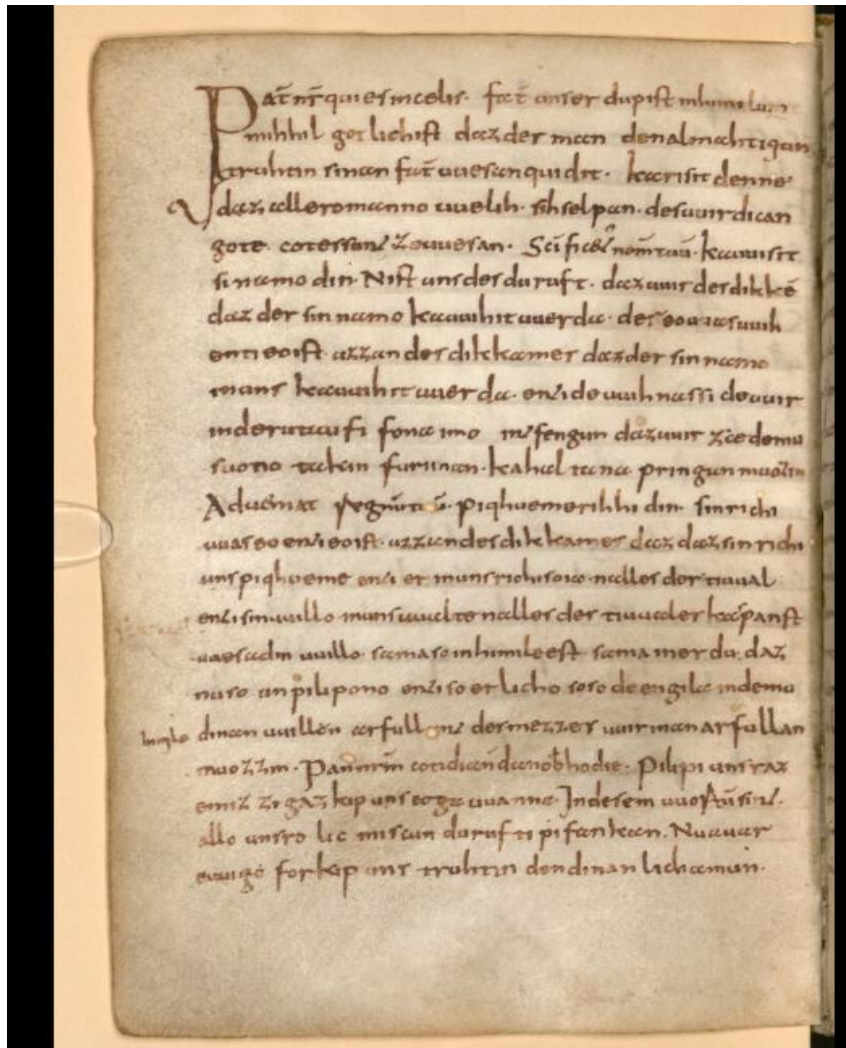 Pat̄ nr̄ qui es in celis. fat̄ unser du pist in himilum
mihhil gotlich ist daz der man den almahtigun
truhtin sinan fat̄ uuesan quidit. karisit denne
daz allero manno uuelih. sih selpan. des uuirdican
gote cotes sun ze uuesan. Sc̄ificet̄ nom̄ tuū. kauuihit
si namo din. Nist uns des duruft. daz uuir des dikkē
daz der sin namo kauuihit uuerda. der eo uuas uuih
enti eo ist. uzzan des dikkames daz der sin namo
in uns kauuihit uuerda. enti de uuihnassi de uuir
in deru taufi fona imo intfengun daz uuir ze demu
suonotakin furi inan. kahaltana pringan muozin
Adueniat regnū tuū. piqhueme rihhi din. sin richi
uuas eo enti eo ist. uzzan des dikkames daz daz sin richi
uns piqhueme enti er in uns richiso ia nalles der tiuual
enti sin uuillo in uns uualte nalles des tiuuales kaspanst
uuesa din uuillo. sama so in himile est. sama in erdu. daz
nu so unpilipono enti so erlicho soso de engila in demu
himile dinan uuillen arfullent des mezzes uuir inan arfullan
muozzin. Panē nr̄m cotidianū da nob̄ hodie. Pilipi unsraz
emizzigaz kip uns eogauuanna. In desem uuortū sint
allo unsro licmiscun durufti pifankan. Nu auar
euuigo forkip uns truhtin den dinan lichamun.